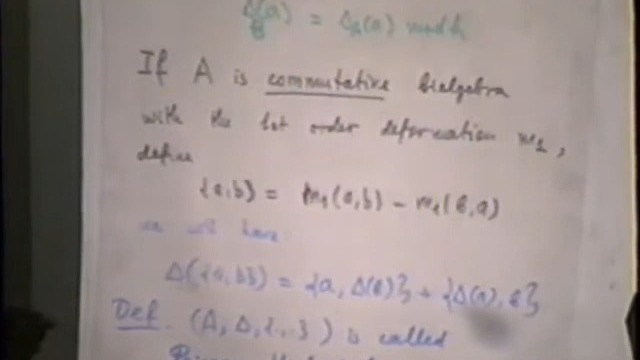 Δ(a) = Δ_A(a) mod h
If A is commutative bialgebra
with the 1st order deformation m₁,
define
{a,b} = m₁(a,b) - m₁(b,a)
we will have:
Δ({a,b}) = {a, Δ(b)} + {Δ(a), b}
Def. (A, Δ, {.,.}) is called